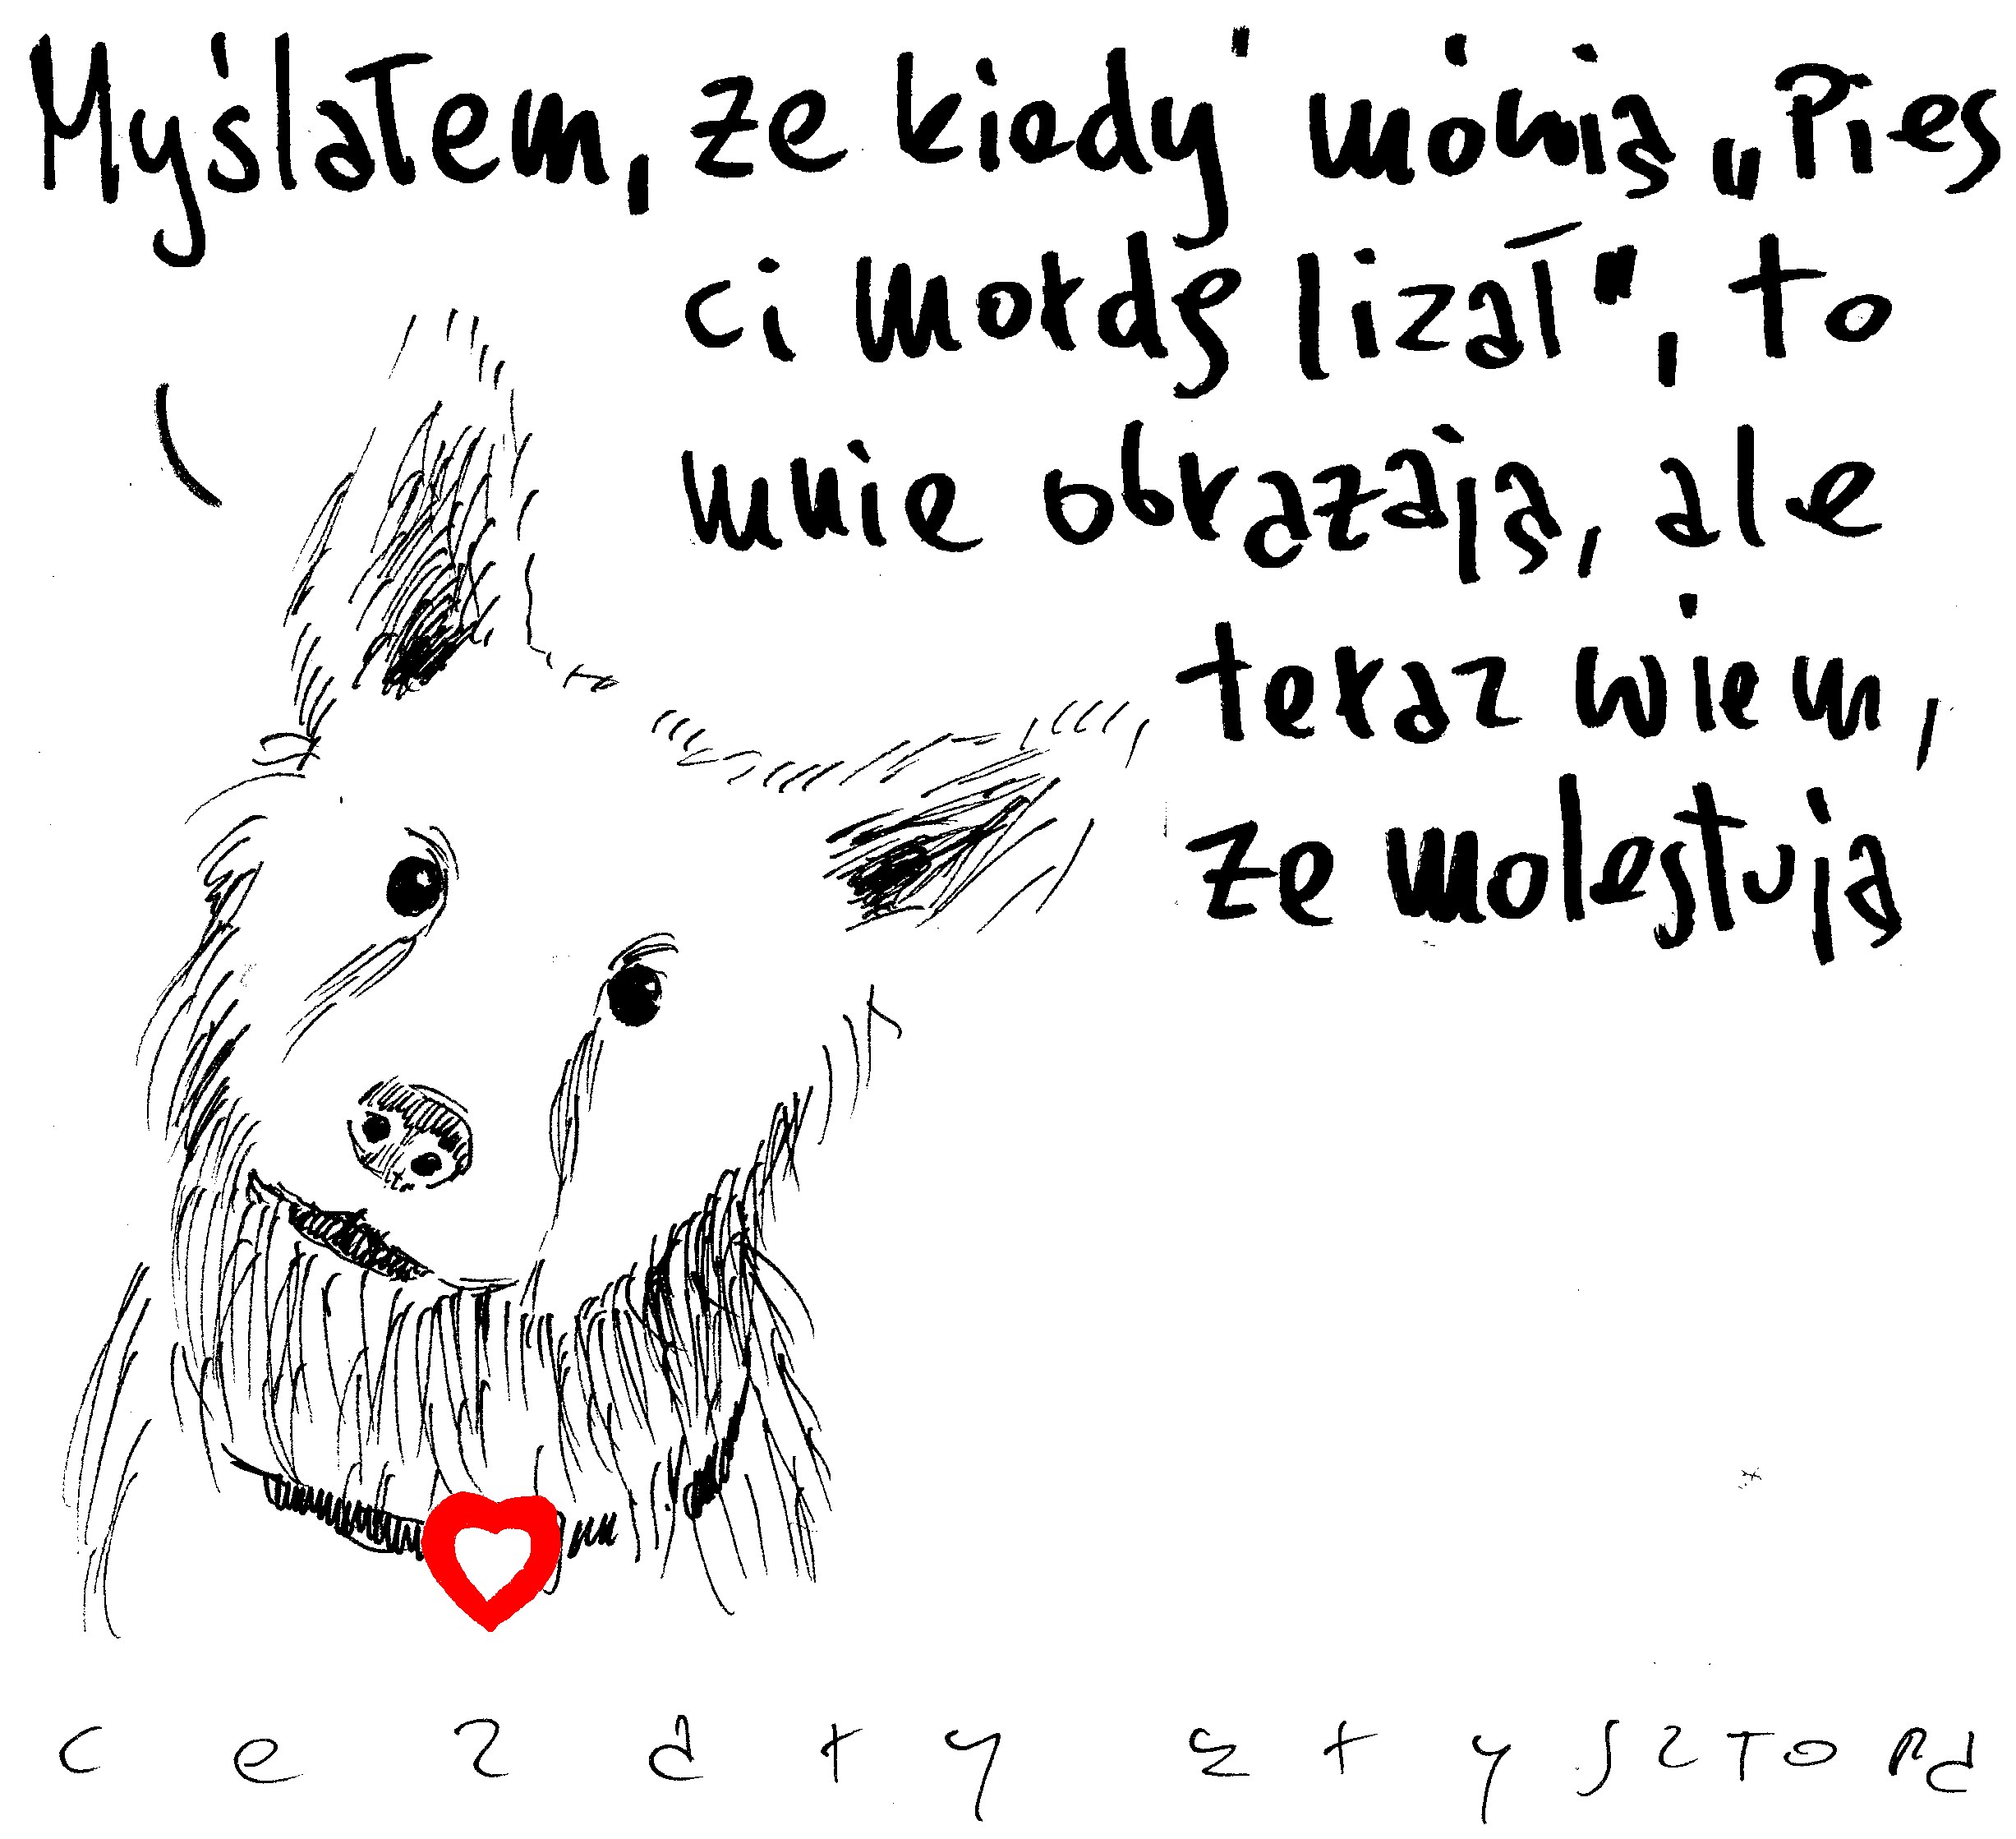 Myślałem, że kiedy mówią „Pies
ci mordę lizał", to
mnie obrażają, ale
teraz wiem,
że molestują
cezary krysztopa